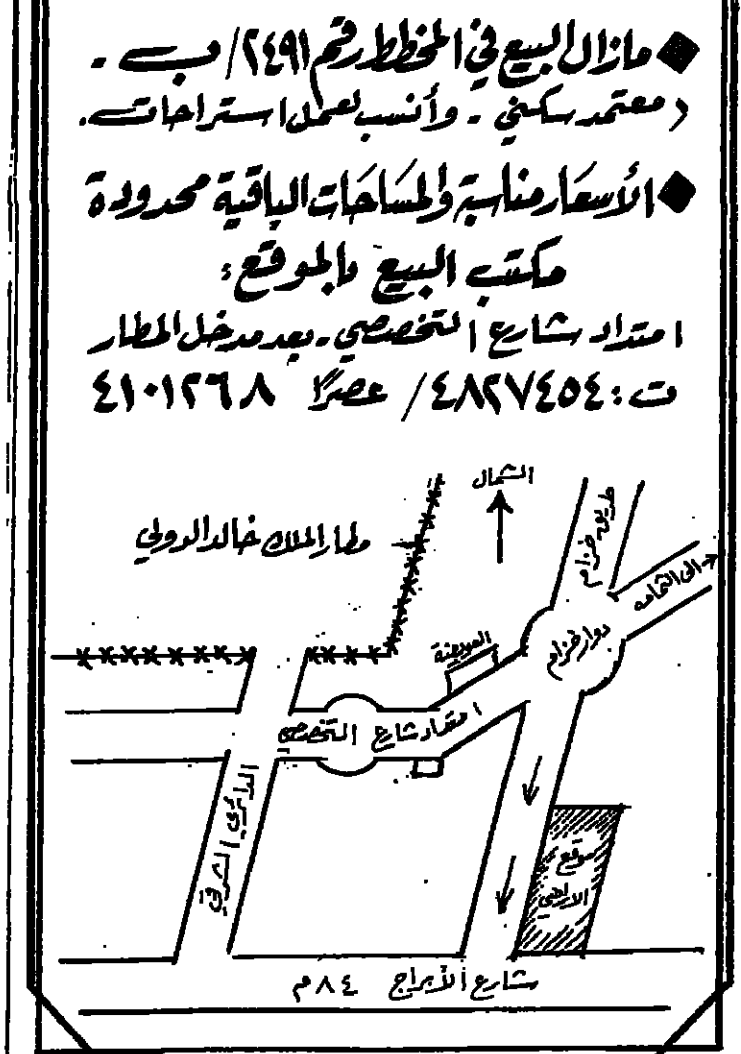 ◆ مازال البيع في المخطط رقم ٢٤٩١/ب -
(معتمد سكني - وأنسب لعمل استراحات.
◆ الأسعار مناسبة والمساحات الباقية محدودة
مكتب البيع بالموقع:
امتداد شارع التخصصي - بعد مدخل المطار
ت: ٤٨٢٧٤٥٤ / عصرًا ٤١٠١٢٦٨
الشمال
طريق خزام
مطار الملك خالد الدولي
الى الثمامه
دوار خزام
امتداد شارع التخصصي
الدائري الشرقي
موقع
الاراضي
شارع الأبراج ٨٤م